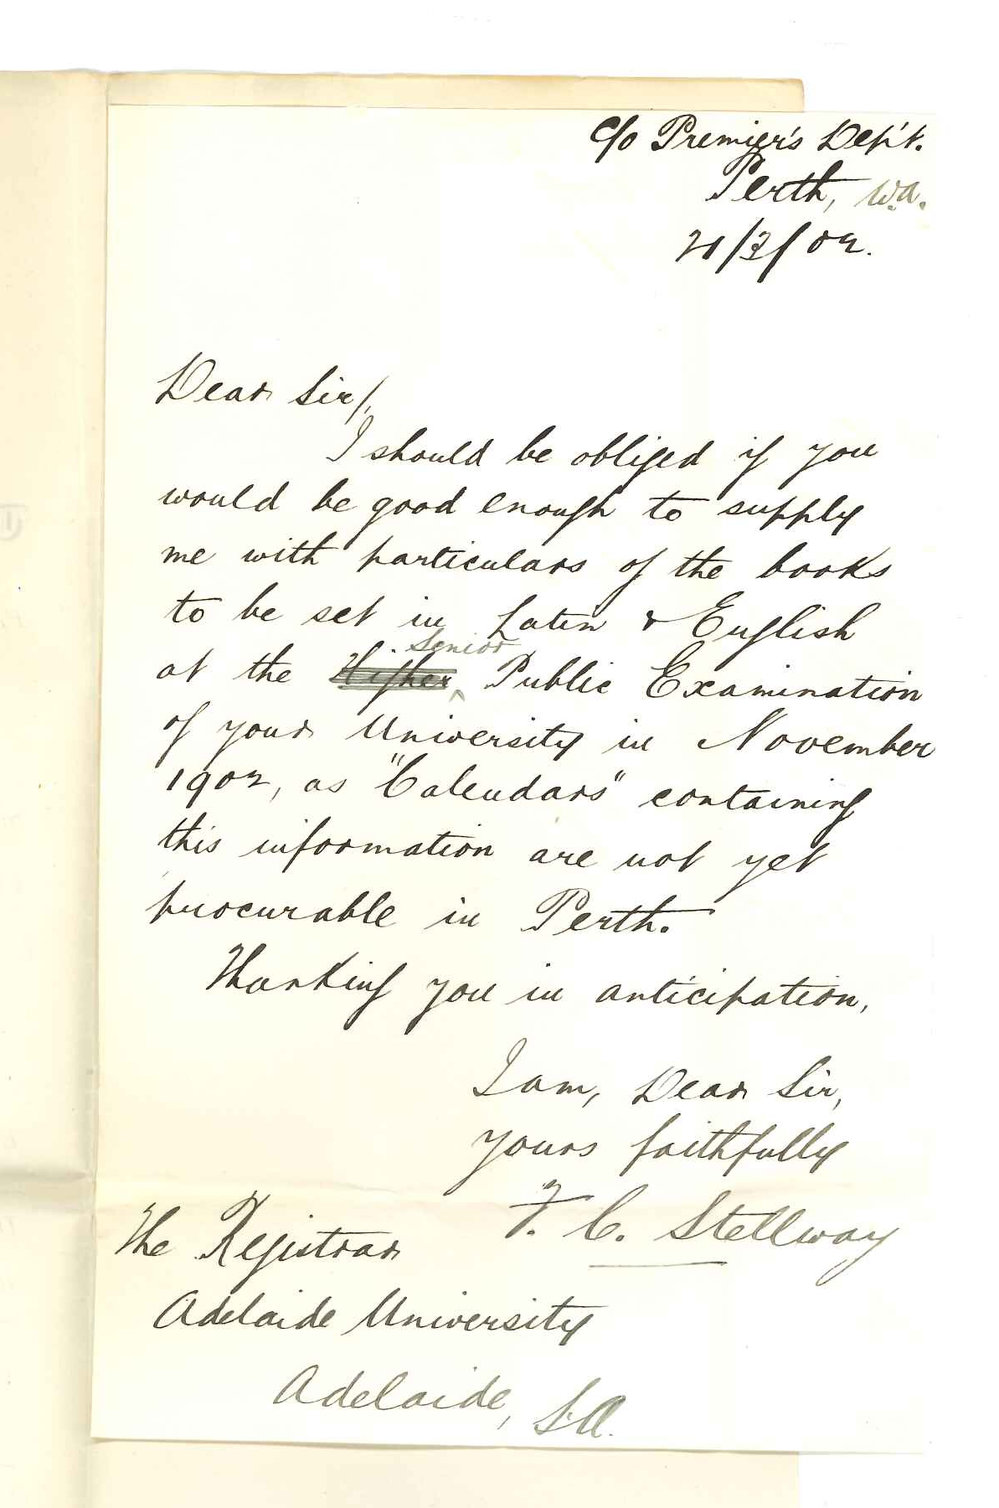 c/o Premier's Dep't.
Perth, W.A.
21/3/02.
Dear Sir/,
I should be obliged if you
would be good enough to supply
me with particulars of the books
to be set in Latin & English
Senior
at the Higher Public Examination
of your University in November
1902, as "Calendars" containing
this information are not yet
procurable in Perth.
Thanking you in anticipation,
I am, Dear Sir,
yours faithfully
F. C. Stellway
The Registrar
Adelaide University
Adelaide, S.A.